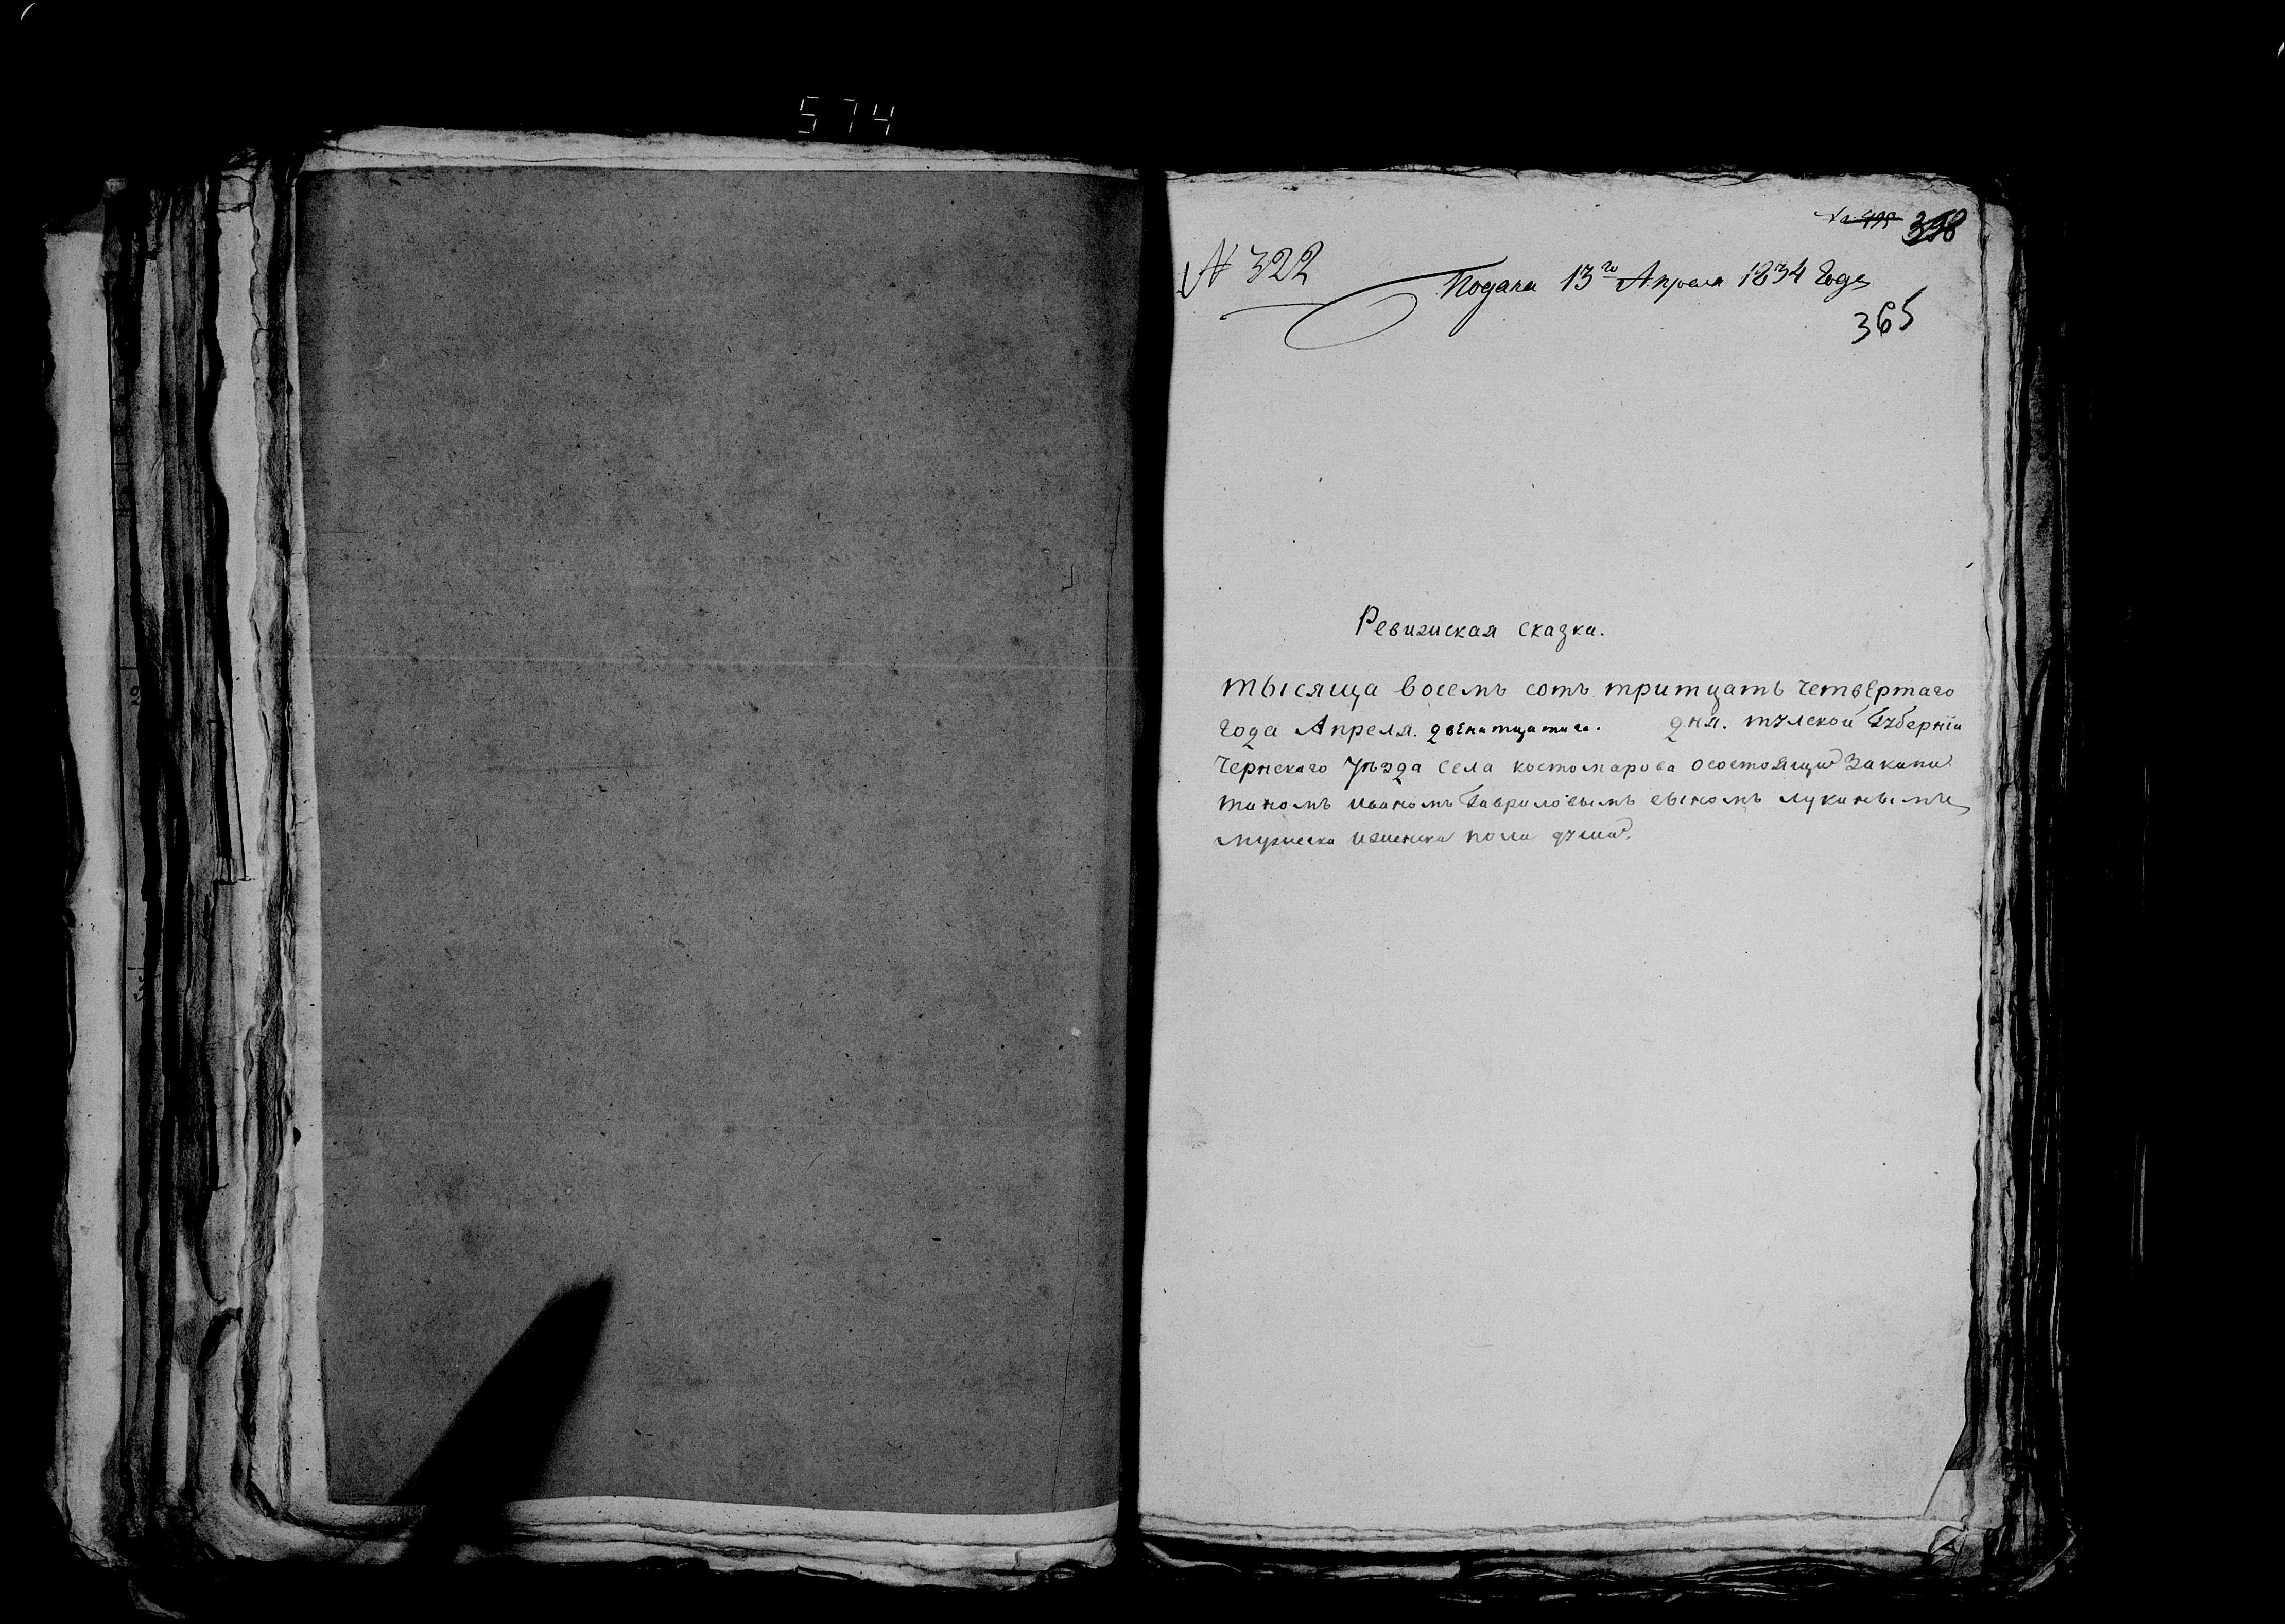 574
398
N 322
Подана 13го Апреля 1834 Года
365
Ревизиская сказка.
тысяща восемь сотъ тритцать четвертаго
года Апреля. двенатцатаго. дня. тулской Губернїи
Чернскаго Уѣзда села костомарова осостоящи закапи
таномъ иваномъ Гавриловымъ сыномъ лукинымъ
мужеска иженска пола душа.